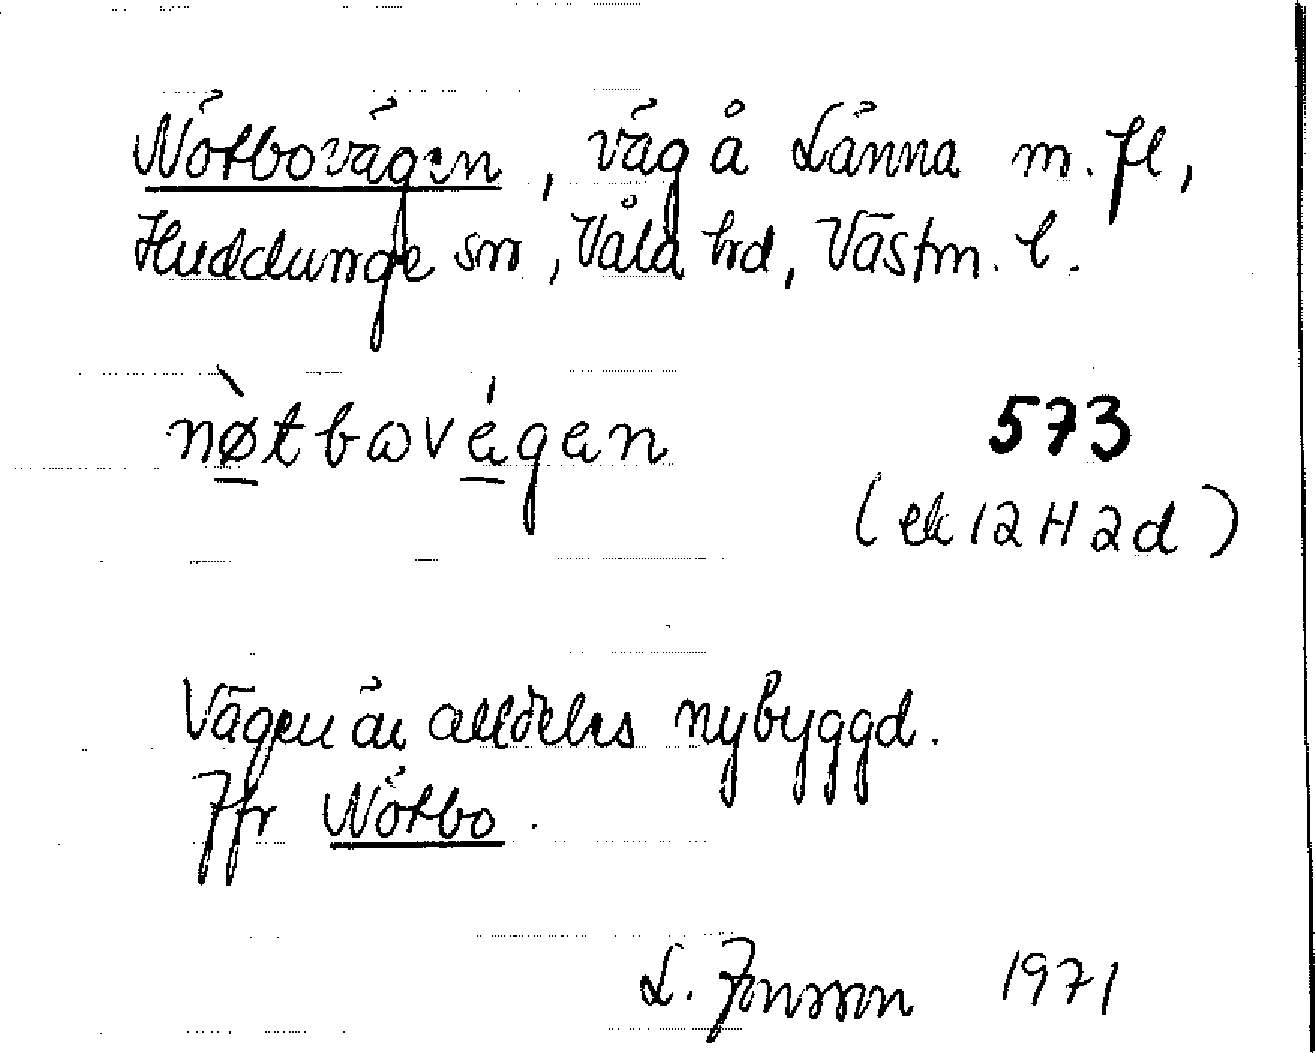 Nötbovägen, väg å Länna m. fl,
Huddunge sn, Våla hd, Västm. l.
nø̀tbωvégen
573
(ek 12 H 2 d)
Vägen är alldeles nybyggd.
Jfr Nötbo.
L. Jonsson 1971